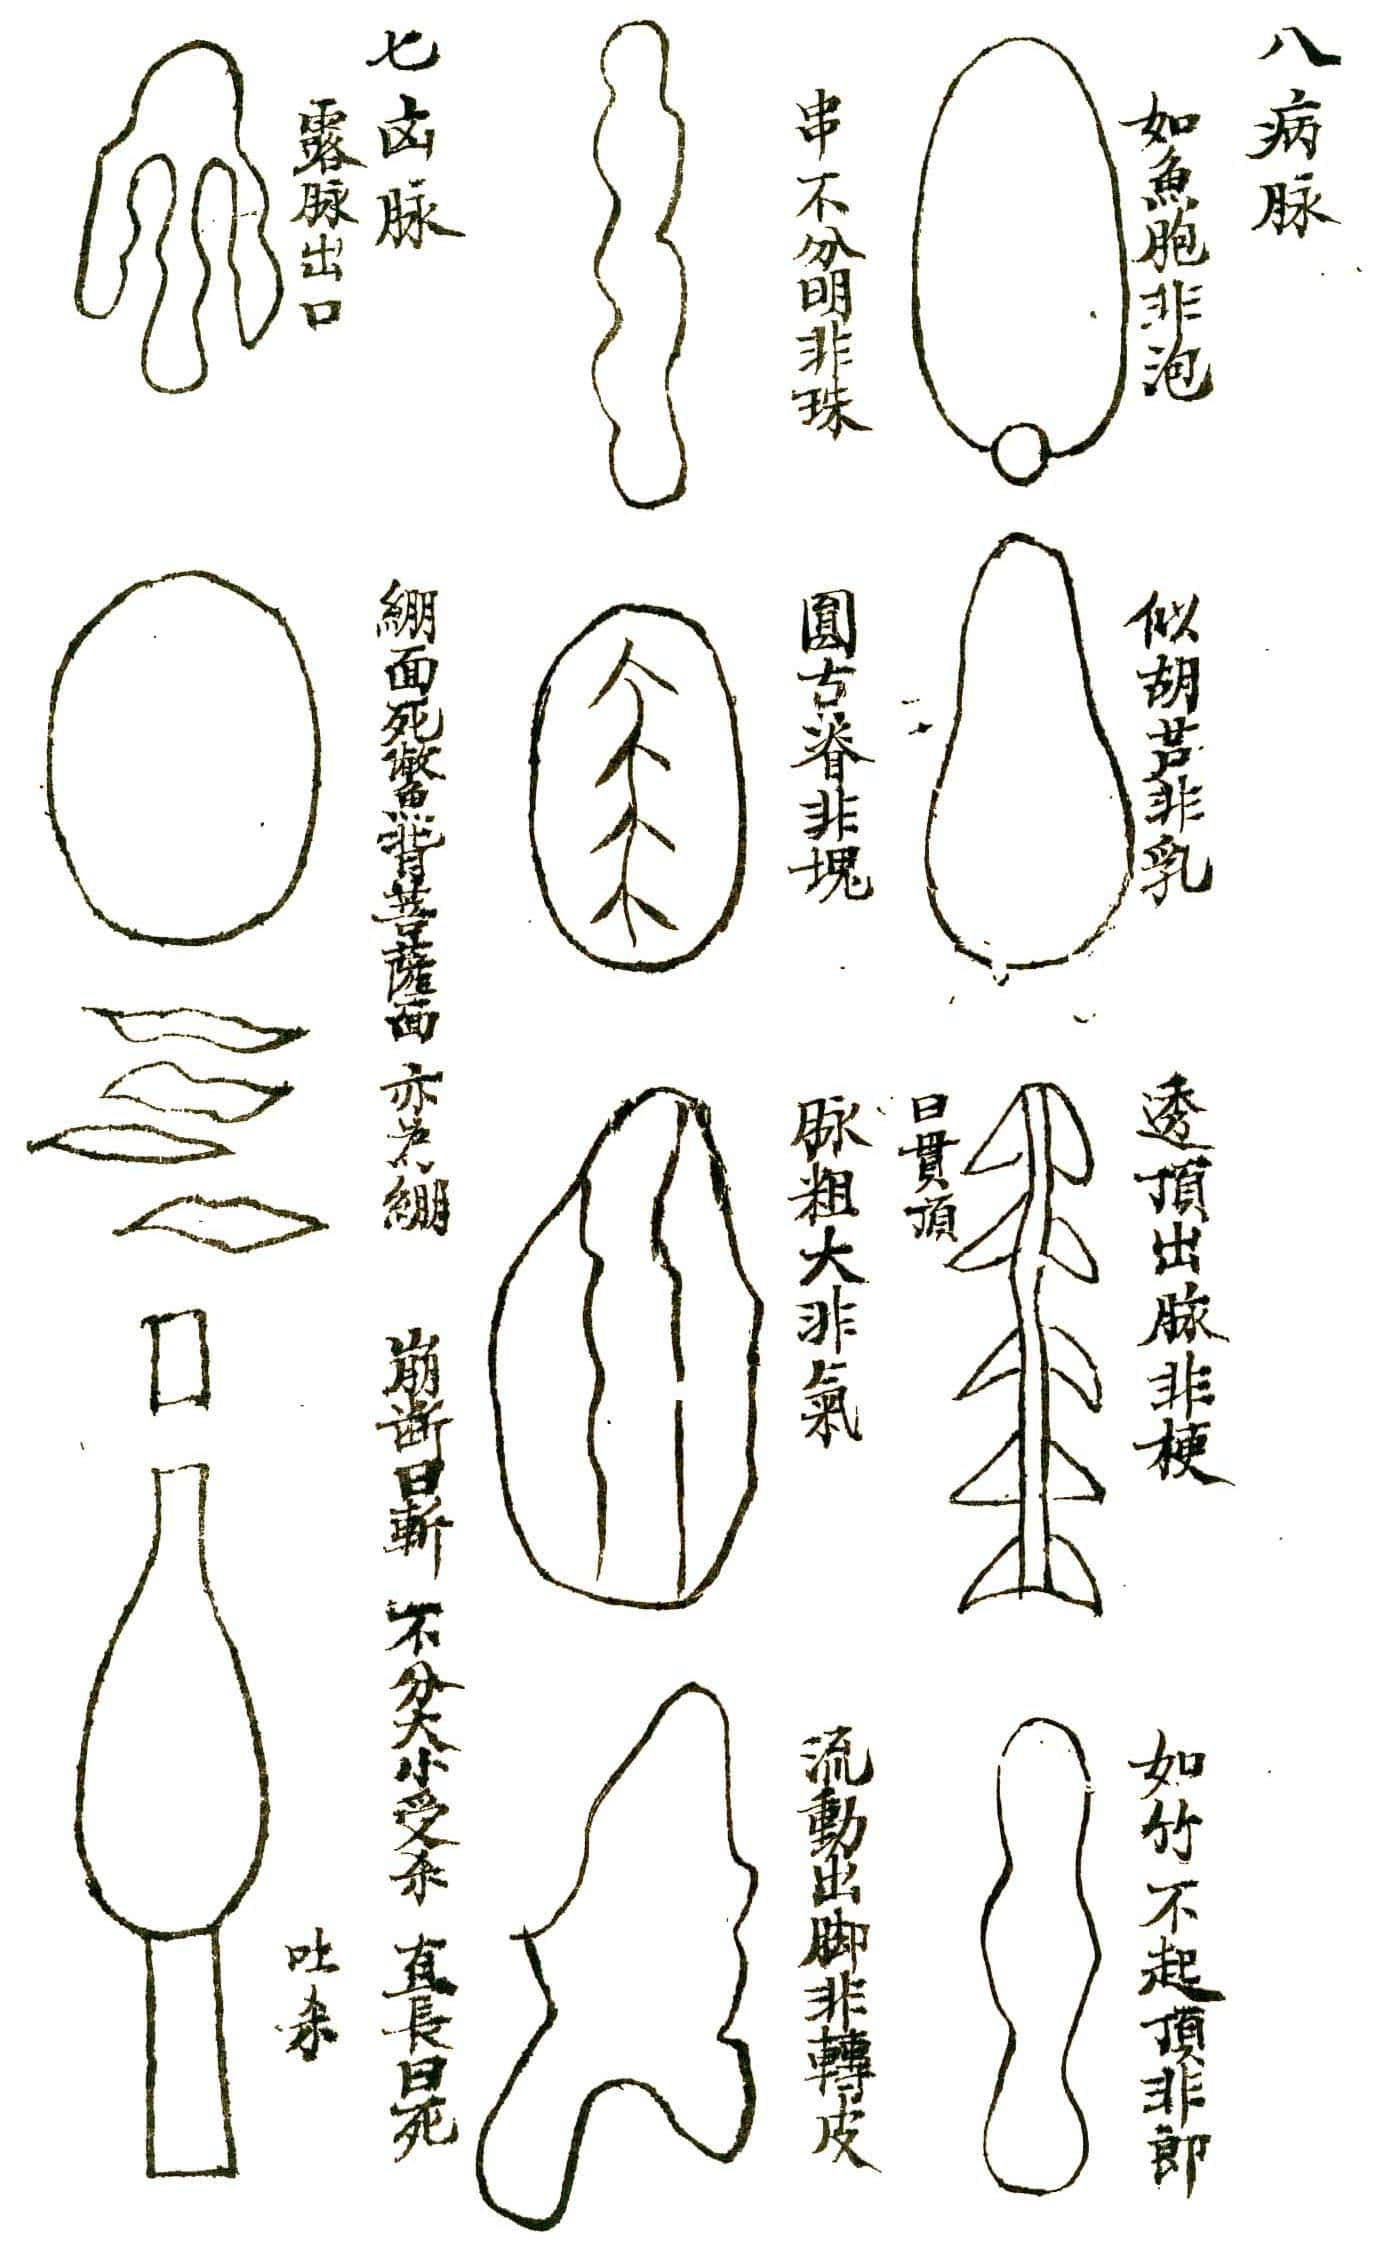 八病脉
如魚胞非泡
似胡芦非乳
透頂出脉非梗
曰貫頂
如竹不起頂非郎
串不分明非珠
圓古脊非塊
脉粗大非氣
流動出脚非轉皮
七凶脉
露脉出口
繃面死鱉背菩薩面
亦為繃
崩断曰斬
不分大小受杀
直長曰死
吐杀